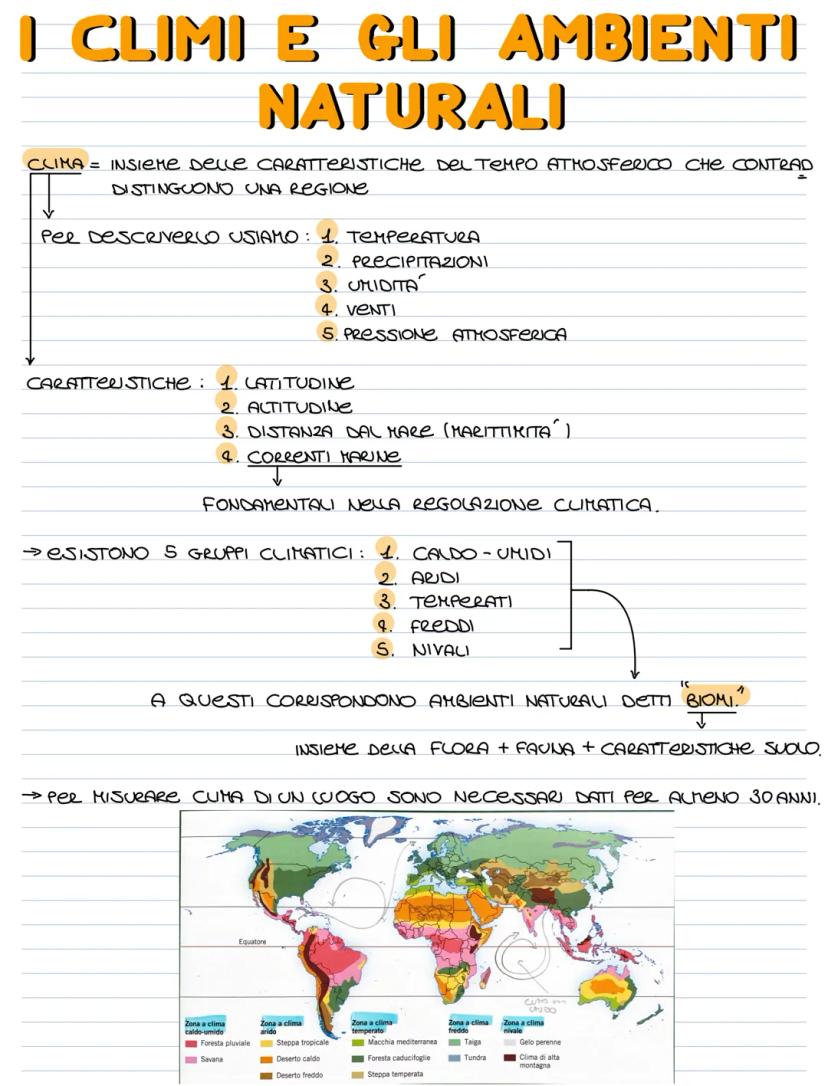 I CLIMI E GLI AMBIENTI
NATURALI
CLIMA = INSIEME DELLE CARATTERISTICHE DEL TEMPO ATMOSFERICO CHE CONTRAD
DISTINGUONO UNA REGIONE
PER DESCRIVERLO USIAMO : 1. TEMPERATURA
2. PRECIPITAZIONI
3. UMIDITA´
4. VENTI
5. PRESSIONE ATMOSFERICA
CARATTERISTICHE : 1. LATITUDINE
2. ALTITUDINE
3. DISTANZA DAL MARE (MARITTIMITA´)
4. CORRENTI MARINE
FONDAMENTALI NELLA REGOLAZIONE CLIMATICA.
→ ESISTONO 5 GRUPPI CLIMATICI : 1. CALDO - UMIDI
2. ARIDI
3. TEMPERATI
4. FREDDI
5. NIVALI
A QUESTI CORRISPONDONO AMBIENTI NATURALI DETTI "BIOMI."
INSIEME DELLA FLORA + FAUNA + CARATTERISTICHE SUOLO.
→ PER MISURARE CLIMA DI UN LUOGO SONO NECESSARI DATI PER ALMENO 30 ANNI.
Equatore
Zona a clima caldo-umido
Foresta pluviale
Savana
Zona a clima arido
Steppa tropicale
Deserto caldo
Deserto freddo
Zona a clima temperato
Macchia mediterranea
Foresta caducifoglie
Steppa temperata
Zona a clima freddo
Taiga
Tundra
Zona a clima nivale
Gelo perenne
Clima di alta
montagna